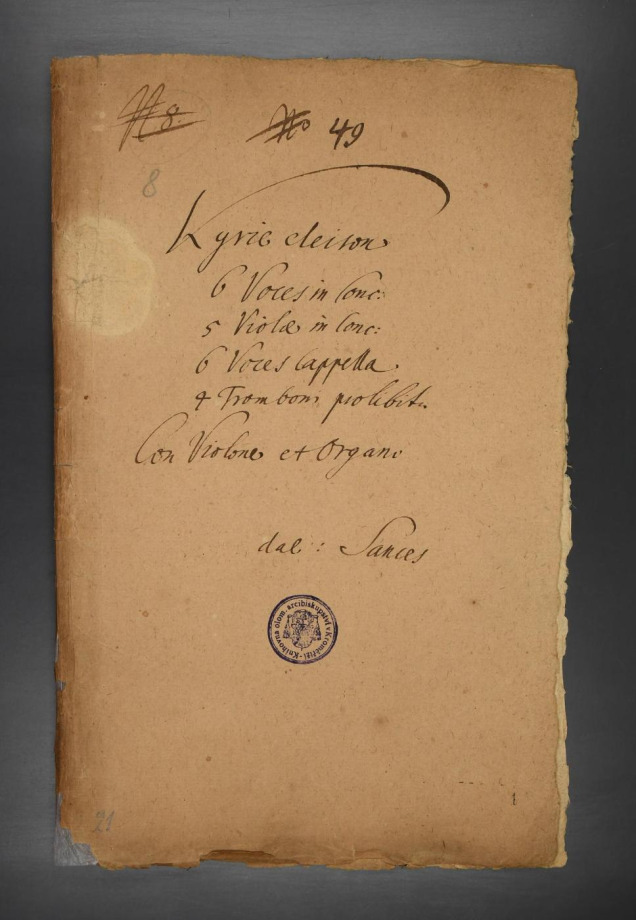 N 8.
No 49
8
Kyrie eleison
6 Voces in Conc:
5 Violæ in Conc:
6 Voces Cappella
4 Tromboni piolibit.
Con Violone et Organo
dal: Sances
Knihovna olom. arcibiskupství v Kroměříži
21